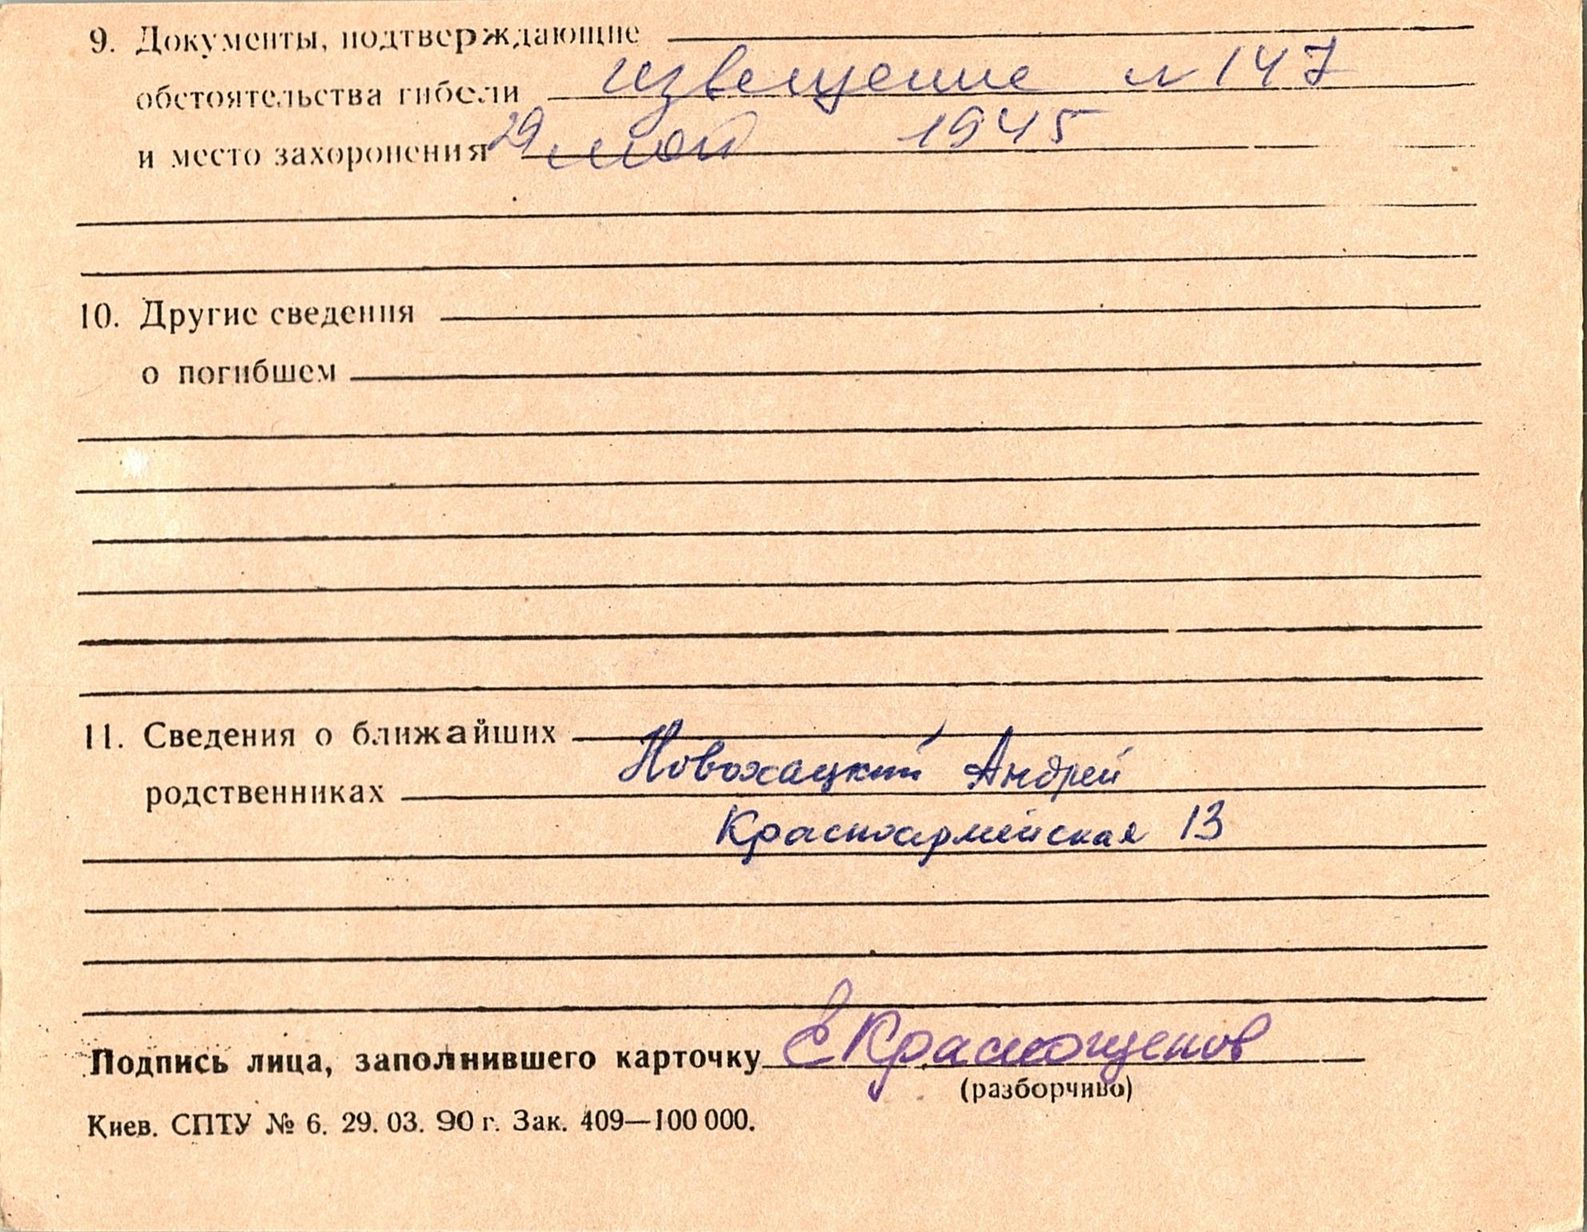 9. Документы, подтверждающие
обстоятельства гибели извещение N 147
и место захоронения 29 май 1945
10. Другие сведения
о погибшем
11. Сведения о ближайших
родственниках Новохацкий Андрей
Красноармейская 13
Подпись лица, заполнившего карточку ЕКраснощеков
(разборчиво)
Киев. СПТУ № 6. 29. 03. 90 г. Зак. 409—100 000.